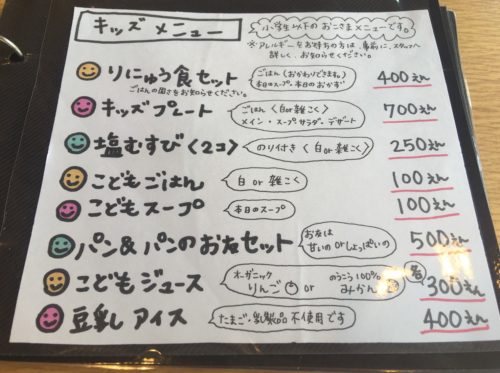 キッズメニュー
小学生以下のおこさまメニューです。
※アレルギーをお持ちの方は、事前に、スタッフへ
詳しく、お知らせください。
りにゅう食セット
ごはんの固さをお知らせください。
ごはん(おかわりできます。)
本日のスープ、本日のおかず
400えん
キッズプレート
ごはん〈白or雑こく〉
メイン・スープ、サラダ・デザート
700えん
塩むすび〈2コ〉
のり付き〈白or雑こく〉
250えん
こどもごはん
白 or 雑こく
100えん
こどもスープ
本日のスープ
100えん
パン&パンのお友セット
お友は
甘いの or しょっぱいの
500えん
こどもジュース
オーガニック
りんご
or
のうこう100%
みかん
各
300えん
豆乳アイス
たまご・乳製品 不使用です
400えん